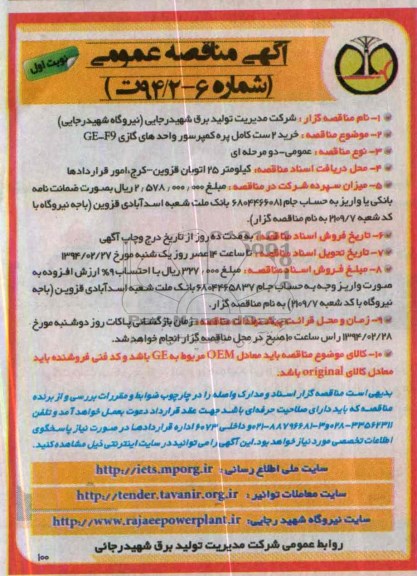 آگهی مناقصه عمومی
(شماره ۶-۹۴/۲ت)
نوبت اول
۱- نام مناقصه گزار : شرکت مدیریت تولید برق شهیدرجایی (نیروگاه شهیدرجایی)
۲- موضوع مناقصه : خرید ۲ ست کامل پره کمپرسور واحد های گازی GE-F9
۳- نوع مناقصه : عمومی-دو مرحله ای
۴- محل دریافت اسناد مناقصه: کیلومتر ۲۵ اتوبان قزوین-کرج،امور قراردادها
۵- میزان سپرده شرکت در مناقصه : مبلغ ۲،۵۷۸،۰۰۰،۰۰۰ ریال بصورت ضمانت نامه
بانکی یا واریز به حساب جام ۶۸۰۴۴۶۶۰۸۱ بانک ملت شعبه اسدآبادی قزوین (باجه نیروگاه با
کد شعبه ۲۱۰۹/۷ به نام مناقصه گزار).
۶- تاریخ فروش اسناد مناقصه: به مدت ده روز از تاریخ درج وچاپ آگهی
۷- تاریخ تحویل اسناد مناقصه: تا ساعت ۱۴ عصر روز یک شنبه مورخ ۱۳۹۴/۰۲/۲۷
۸- مبلغ فروش اسناد مناقصه: مبلغ ۳۲۷،۰۰۰ ریال با احتساب ۹% ارزش افزوده به
صورت واریز وجه به حساب جام ۶۸۰۴۴۶۵۸۳۷ بانک ملت شعبه اسدآبادی قزوین (باجه
نیروگاه با کد شعبه ۲۱۰۹/۷) به نام مناقصه گزار.
۹- زمان و محل قرائت پیشنهادات مناقصه : زمان بازگشائی پاکات روز دوشنبه مورخ
۱۳۹۴/۰۲/۲۸ راس ساعت ۱۰ صبح در محل مناقصه گزار انجام خواهد شد.
۱۰- کالای موضوع مناقصه باید معادل OEM مربوط به GE باشد و کد فنی فروشنده باید
معادل کالای original باشد.
بدیهی است مناقصه گزار اسناد و مدارک واصله را در چارچوب ضوابط و مقررات بررسی و از برنده
مناقصه که باید دارای صلاحیت حرفه‌ای باشد جهت عقد قرارداد دعوت بعمل خواهد آمد و تلفن
۳۳۵۶۲۳۱۱-۰۲۸ و ۳-۸۸۷۹۶۶۸۱-۰۲۱ داخلی ۶۰۷۳ اداره قراردادها در صورت نیاز پاسخگوی
اطلاعات تخصصی مورد نیاز خواهد بود.این آگهی را می توانید در سایت اینترنتی ذیل مشاهده کنید.
سایت ملی اطلاع رسانی : http://iets.mporg.ir
سایت معاملات توانیر : http://tender.tavanir.org.ir
سایت نیروگاه شهید رجایی: http://www.rajaeepowerplant.ir
روابط عمومی شرکت مدیریت تولید برق شهیدرجائی
۱۰۰